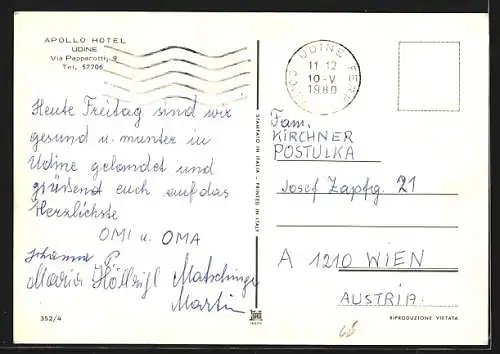 APOLLO HOTEL
UDINE
Via Paparotti, 9
Tel. 57706
UDINE FERR
11 12
10-V
1980
Heute Freitag sind wir
gesund u. munter in
Udine gelandet und
grüßend euch auf das
Herzlichste
OMI u. OMA
Johanna P.
Maria Höllrigl
Martin
352/4
STAMPATO IN ITALIA - PRINTED IN ITALY
Fam.
KIRCHNER
POSTULKA
Josef Zapfg. 21
A 1210 WIEN
AUSTRIA
RIPRODUZIONE VIETATA